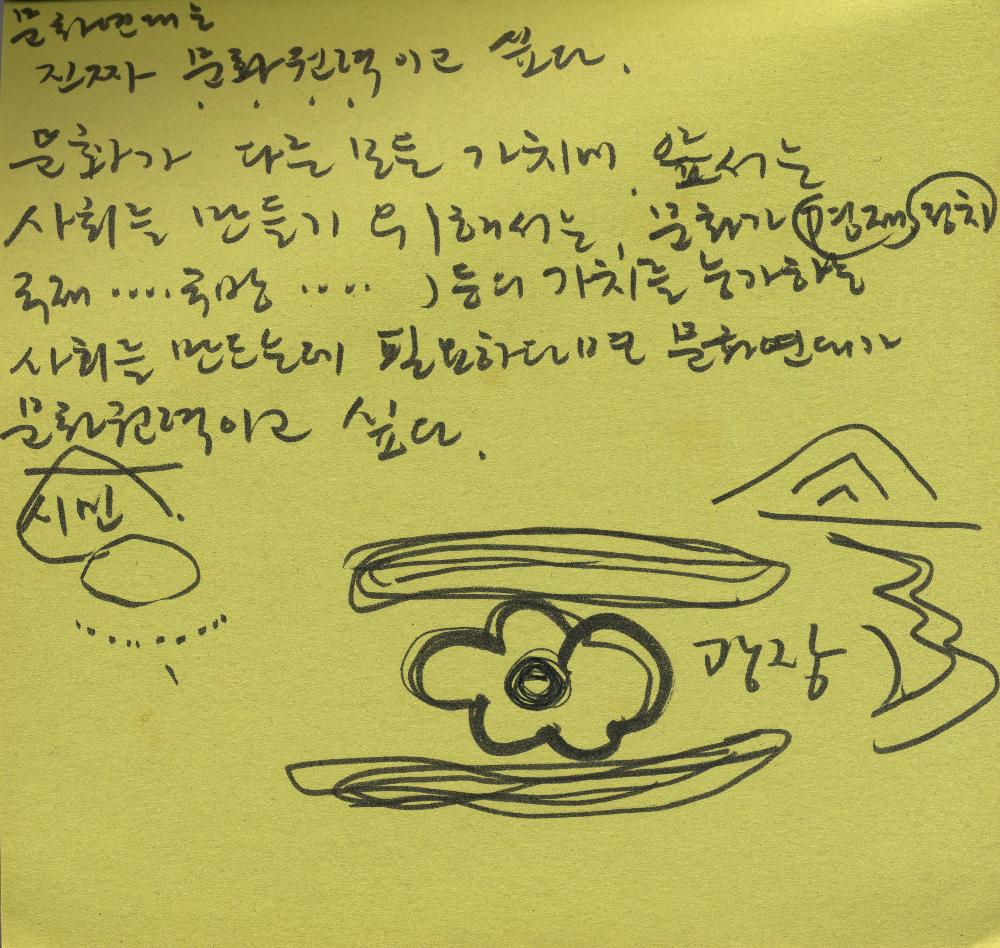 문화연대는
진짜 문화권력이고 싶다.
문화가 다른 모든 가치에 앞서는
사회를 만들기 위해서는, 문화가 (경제, 정치
국제 .... 국방 .... ) 등의 가치를 능가하는
사회를 만드는데 필요하다면 문화연대가
문화권력이고 싶다.
시민
광장